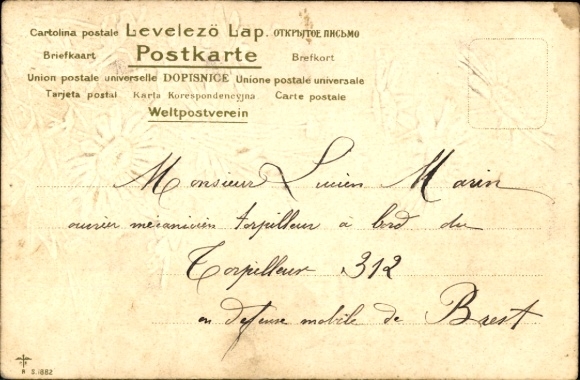 Cartolina postale Levelező Lap. ОТКРЫТОЕ ПИСЬМО
Briefkaart Postkarte Brefkort
Union postale universelle DOPISNICE Unione postale universale
Tarjeta postal Karta Korespondencyjna Carte postale
Weltpostverein
Monsieur Lucien Marin
ouvrier mécanicien torpilleur à bord du
Torpilleur 312
en défense mobile de Brest
S. 1882